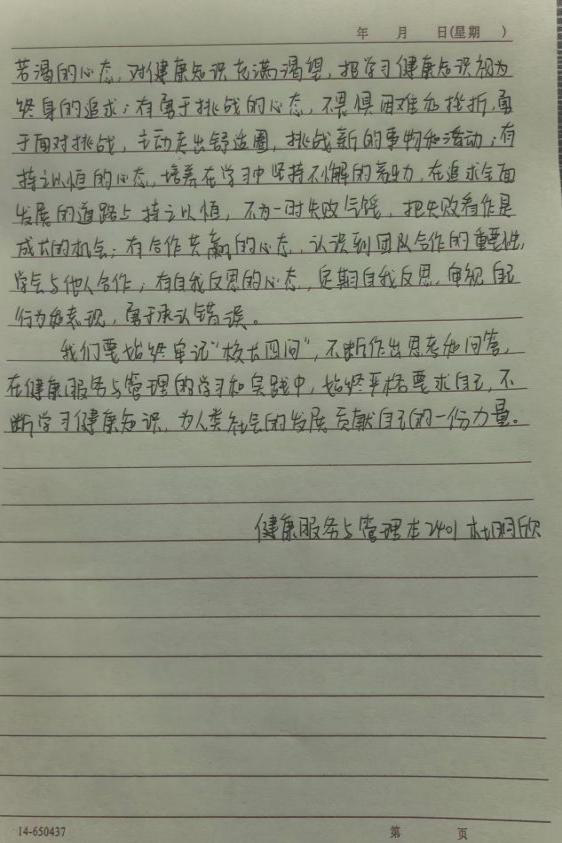 年 月 日(星期 )
若渴的心态，对健康知识充满渴望，把学习健康知识视为
终身的追求；有勇于挑战的心态，不畏惧困难和挫折，勇
于面对挑战，主动走出舒适圈，挑战新的事物和活动；有
持之以恒的心态，培养在学习中坚持不懈的努力，在追求全面
发展的道路上持之以恒，不为一时失败气馁，把失败看作是
成长的机会；有合作共赢的心态，认识到团队合作的重要性，
学会与他人合作；有自我反思的心态，定期自我反思，审视自己
行为和表现，勇于承认错误。
我们要始终牢记“校长四问”，不断作出思考和问答，
在健康服务与管理的学习和实践中，始终严格要求自己，不
断学习健康知识，为人类社会的发展贡献自己的一份力量。
健康服务与管理本2401
14-650437 第 页